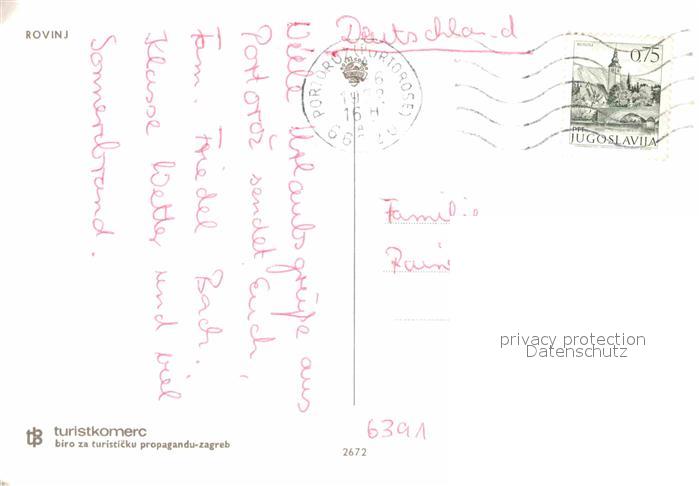 ROVINJ
Viele Urlaubsgrüße aus
Portorož sendet Euch,
Fam. Friedel Bach.
Klasse Wetter und viel
Sonnenbrand.
Deutschland
PORTOROŽ (PORTOROSE)
0,75
PTT
JUGOSLAVIJA
Familie
privacy protection
Datenschutz
6391
turistkomerc
biro za turističku propagandu-zagreb
2672